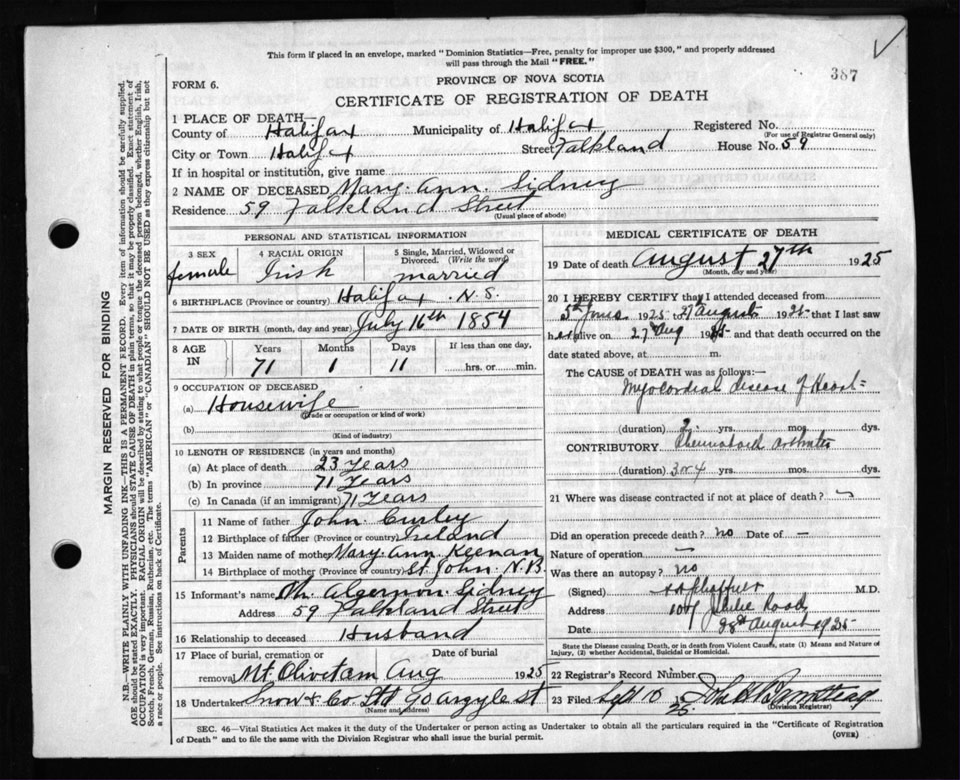 This form if placed in an envelope, marked "Dominion Statistics—Free, penalty for improper use $300," and properly addressed
will pass through the Mail "FREE."
387
FORM 6.
PROVINCE OF NOVA SCOTIA
CERTIFICATE OF REGISTRATION OF DEATH
MARGIN RESERVED FOR BINDING
N.B.—WRITE PLAINLY WITH UNFADING INK—THIS IS A PERMANENT RECORD. Every item of information should be carefully supplied.
AGE should be stated EXACTLY. PHYSICIANS should STATE CAUSE OF DEATH in plain terms, so that it may be properly classified. Exact statement of
OCCUPATION is very important. RACIAL ORIGIN will be described by stating to what people or tongue the deceased person belonged, whether English, Irish,
Scotch, French, German, Russian, Ruthenian, etc. The terms "AMERICAN" or "CANADIAN" SHOULD NOT BE USED as they express citizenship but not
a race or people. See instructions on back of Certificate.
1 PLACE OF DEATH—
County of Halifax Municipality of Halifax Registered No.
(For use of Registrar General only)
City or Town Halifax Street Falkland House No. 59
If in hospital or institution, give name
2 NAME OF DECEASED Mary Ann Sidney
Residence 59 Falkland Street
(Usual place of abode)
PERSONAL AND STATISTICAL INFORMATION
3 SEX female
4 RACIAL ORIGIN Irish
5 Single, Married, Widowed or
Divorced. (Write the word)
married
6 BIRTHPLACE (Province or country) Halifax N.S.
7 DATE OF BIRTH (month, day and year) July 16th 1854
8 AGE IN
Years 71
Months 1
Days 11
If less than one day,
hrs. or min.
9 OCCUPATION OF DECEASED
(a) Housewife
(Trade or occupation or kind of work)
(b)
(Kind of industry)
10 LENGTH OF RESIDENCE (in years and months)
(a) At place of death 23 Years
(b) In province 71 Years
(c) In Canada (if an immigrant) 71 Years
Parents
11 Name of father John Curley
12 Birthplace of father (Province or country) Ireland
13 Maiden name of mother Mary Ann Keenan
14 Birthplace of mother (Province or country) St John N.B
15 Informant's name Algernon Sidney
Address 59 Falkland Street
16 Relationship to deceased Husband
17 Place of burial, cremation or Date of burial
removal Mt. Olivet Aug 1925
18 Undertaker Snow & Co Ltd 90 Argyle St
(Name and address)
MEDICAL CERTIFICATE OF DEATH
19 Date of death August 27th 1925
(Month, day and year)
20 I HEREBY CERTIFY that I attended deceased from
5th June 1925 to 27 August 1925 that I last saw
her alive on 27 Aug 1925 and that death occurred on the
date stated above, at m.
The CAUSE of DEATH was as follows:—
Myocordial disease of Heart
(duration) 2 yrs. mos. dys.
CONTRIBUTORY Rheumatoid Arthritis
(duration) 3 or 4 yrs. mos. dys.
21 Where was disease contracted if not at place of death? —
Did an operation precede death? no Date of —
Nature of operation —
Was there an autopsy? no
(Signed) M.D.
Address Road
Date 28th August 1925
State the Disease causing Death, or in death from Violent Causes, state (1) Means and Nature of
Injury, (2) whether Accidental, Suicidal or Homicidal.
22 Registrar's Record Number
23 Filed Sept 10 1925
(Division Registrar)
SEC. 46—Vital Statistics Act makes it the duty of the Undertaker or person acting as Undertaker to obtain all the particulars required in the "Certificate of Registration
of Death" and to file the same with the Division Registrar who shall issue the burial permit.
(OVER)